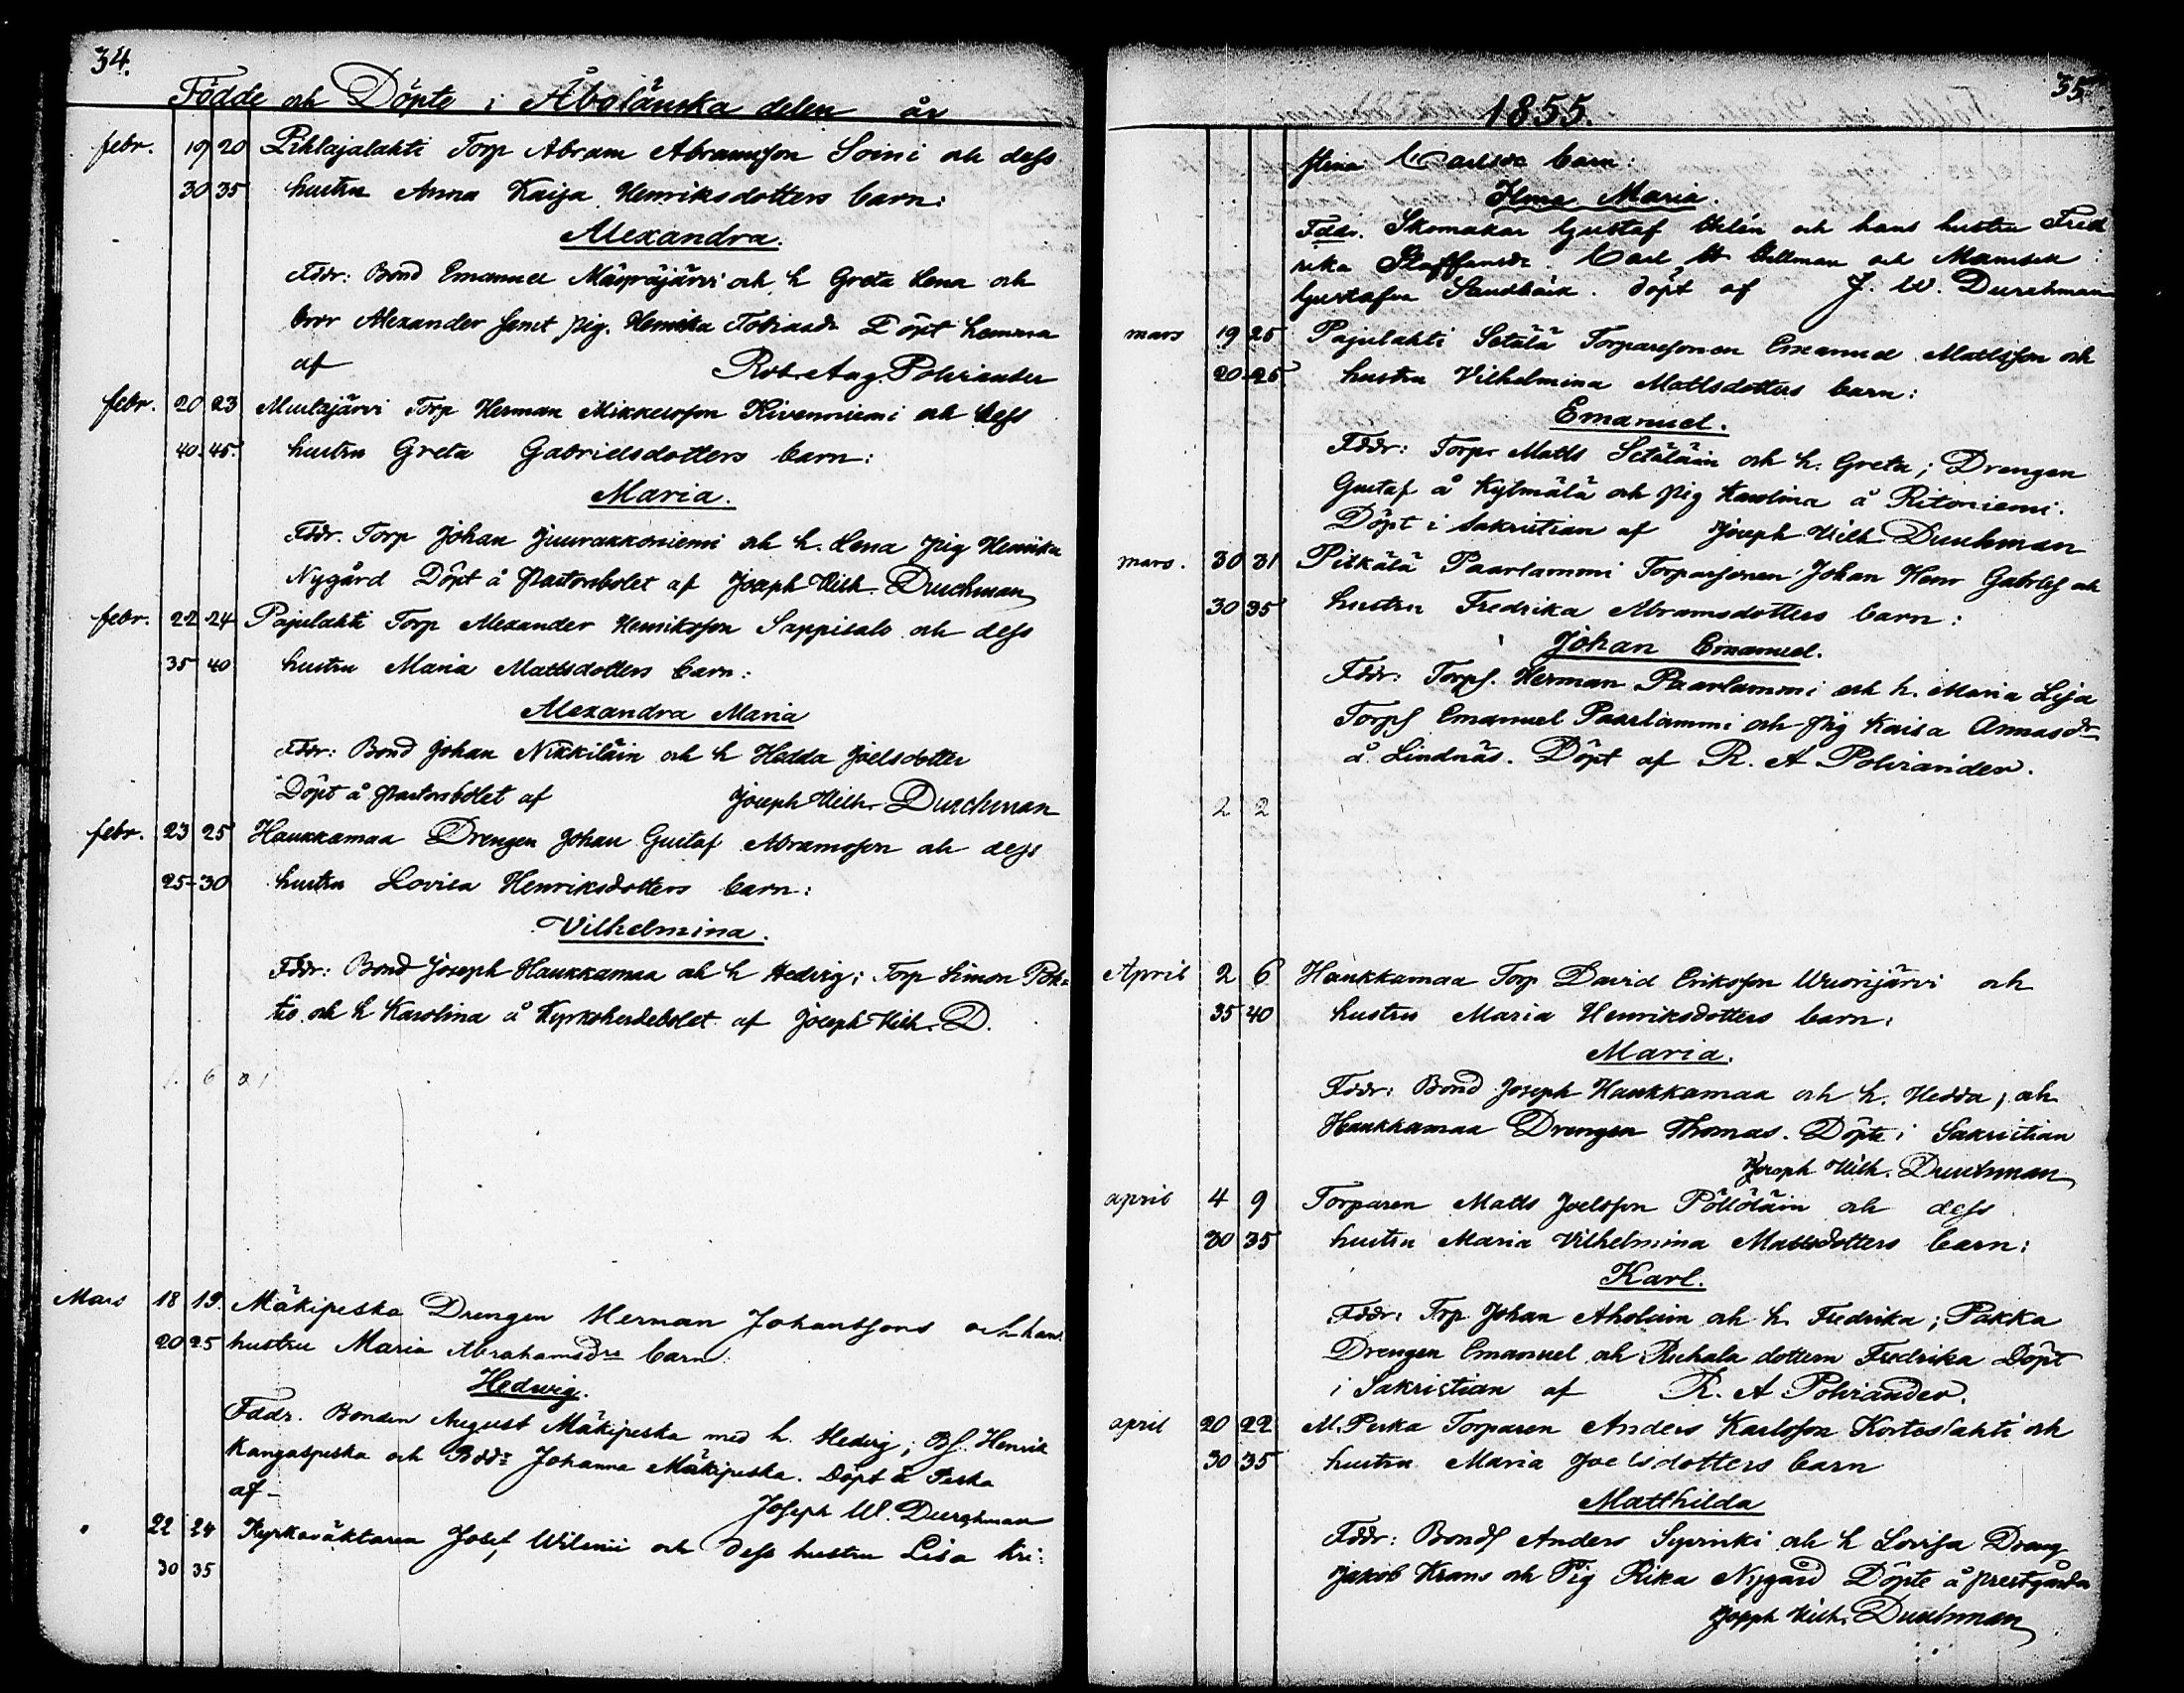 34.
Födde och Döpte i Åbolänska delen år
febr. 19 20 Pihlajalahti Torp Abram Abramsson Soini och dess
30 35 hustru Anna Kaisa Henriksdotters barn:
Alexandra.
Fddr: Bond Emanuel och h Greta Lena och
bror Alexander samt pig. Henrika Tobiasdr Döpt hemma
af Rob. Aug. Polviander
febr. 20 23 Mustajärvi Torp Herman Mikkelsson Kivenniemi och dess
40. 45. hustru Greta Gabrielsdotters barn:
Maria.
Fddr. Torp Johan Juurakkoniemi och h. Lena pig Henrika
Nygård Döpt å Pastorsbolet af Joseph Wilh. Durchman
febr. 22 24 Pajulahti Torp Alexander Henriksson Sappisalo och dess
35 40 hustru Maria Mattsdotters barn:
Alexandra Maria
Fddr: Bond Johan Nikkiläin och h Hedda Joelsdotter
Döpt å Pastorsbolet af Joseph Wilh. Durchman
febr. 23 25 Haukkamaa Drengen Johan Gustaf Abramsson och dess
25-30 hustru Lovisa Henriksdotters barn:
Vilhelmina.
Fddr: Bond Joseph Haukkamaa och h Hedvig; Torp Simon Pok=
tio och h Karolina å Kyrkoherdebolet af Joseph Wilh. D.
6
Mars 18 19. Mäkipeska Drengen Herman Johanssons och hans
20 25 hustru Maria Abrahamsdrs barn:
Hedwig.
Fddr. Bonden August Mäkipeska med h. Hedvig; Bs. Henrik
Kangaspeska och Bddr Johanna Mäkipeska. Döpt å Peska
af- Joseph W. Durchman
" 22 24 Kyrkoväktaren Josef Wilenii och dess hustru Lisa Kri-
30 35
35
1855.
stina Carlsdr barn:
Ilma Maria.
Fddr. Skomakar Gustaf Helén och hans hustru Fred
rika Staffansdr. Carl W. Cellman och Mamsell
Gustafva Sandbäck. döpt af J. W. Durchman
mars 19 25 Pajulahti Setälä Torparesonen Emanuel Mattsson och
20-25 hustru Vilhelmina Mattsdotters barn:
Emanuel.
Fddr: Torp. Matts Setäläin och h. Greta; Drengen
Gustaf å Kylmälä och pig Karolina å Ritoniemi.
Döpt i Sakristian af Joseph Wilh Durchman
mars. 30 31 Pitkälä Paarlammi Torparsonen Johan Henr Gabrlss och
30 35 hustru Fredrika Abramsdotters barn:
Johan Emanuel.
Fddr: Torps. Herman Paarlammi och h. Maria Lisa
Torps Emanuel Paarlammi och pig Kaisa Annasdr
å Lindnäs. Döpt af R. A Polviander.
2 2
April 2 6 Haukkamaa Torp David Eriksson Wuorijärvi och
35 40 hustru Maria Henriksdotters barn:
Maria.
Fddr: Bond Joseph Haukkamaa och h. Hedda, och
Haukkamaa Drengen Thomas. Döpte i Sakristian
Joseph Wilh. Durchman
april 4 9 Torparen Matts Joelsson Pöllöläin och dess
30 35 hustru Maria Vilhelmina Mattsdotters barn:
Karl.
Fddr: Trp Johan Aholain och h. Fredrika; Pakka
Drengen Emanuel och Ruhala dottern Fredrika Döpt
i Sakristian af R. A Polviander.
april 20 22 M. Peska Torparen Anders Karlsson Korteslahti och
30 35 hustru Maria Joelsdotters barn
Matthilda
Fddr: Bonds Anders Syvinki och h Lovisa Dreng
Jakob Krans och Pig Rika Nygård Döpte å prestgården
Joseph Wilh. Durchman